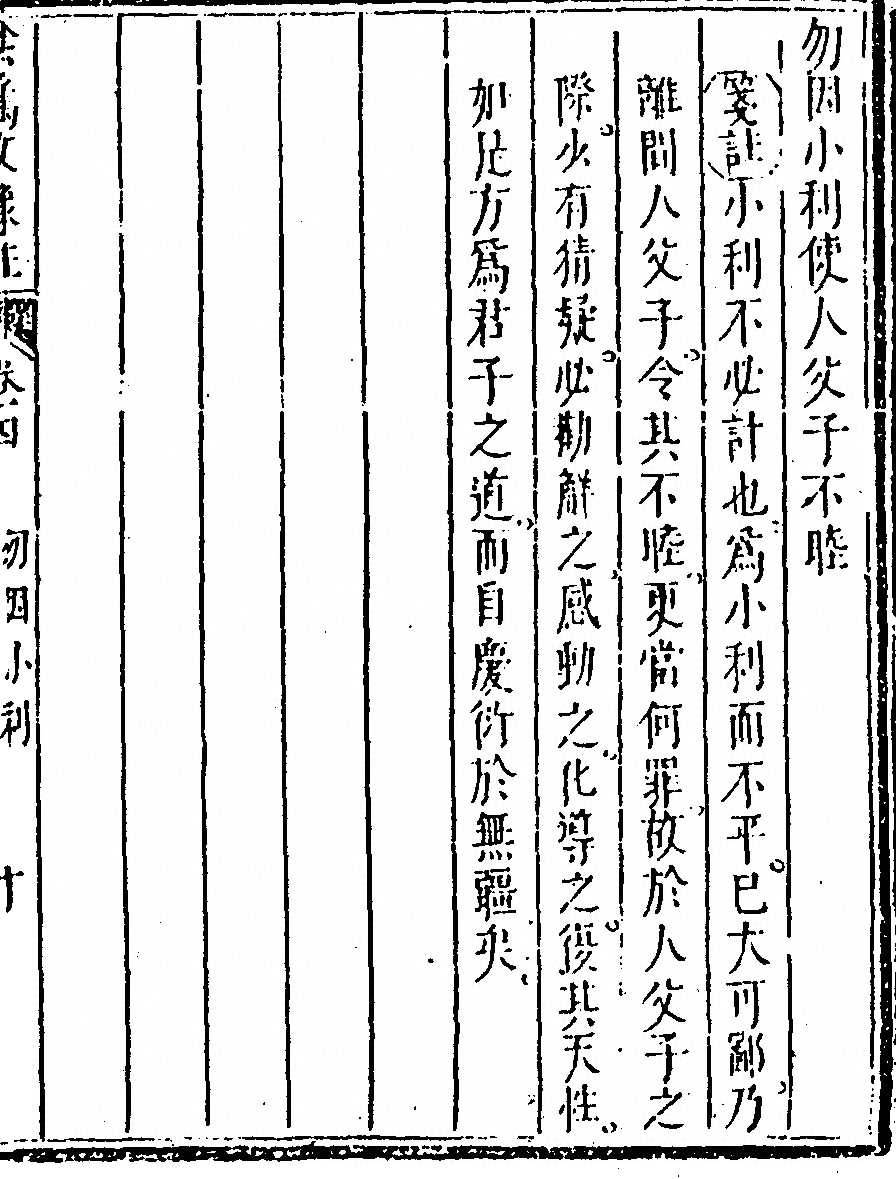 勿因小利使人父子不睦
箋註小利不必計也爲小利而不平已大可鄙乃
離間人父子令其不睦更當何罪故於人父子之
際少有猜疑必勸解之感動之化導之復其天性
如是方爲君子之道而自慶衍於無疆矣
卷四 勿因小利 十